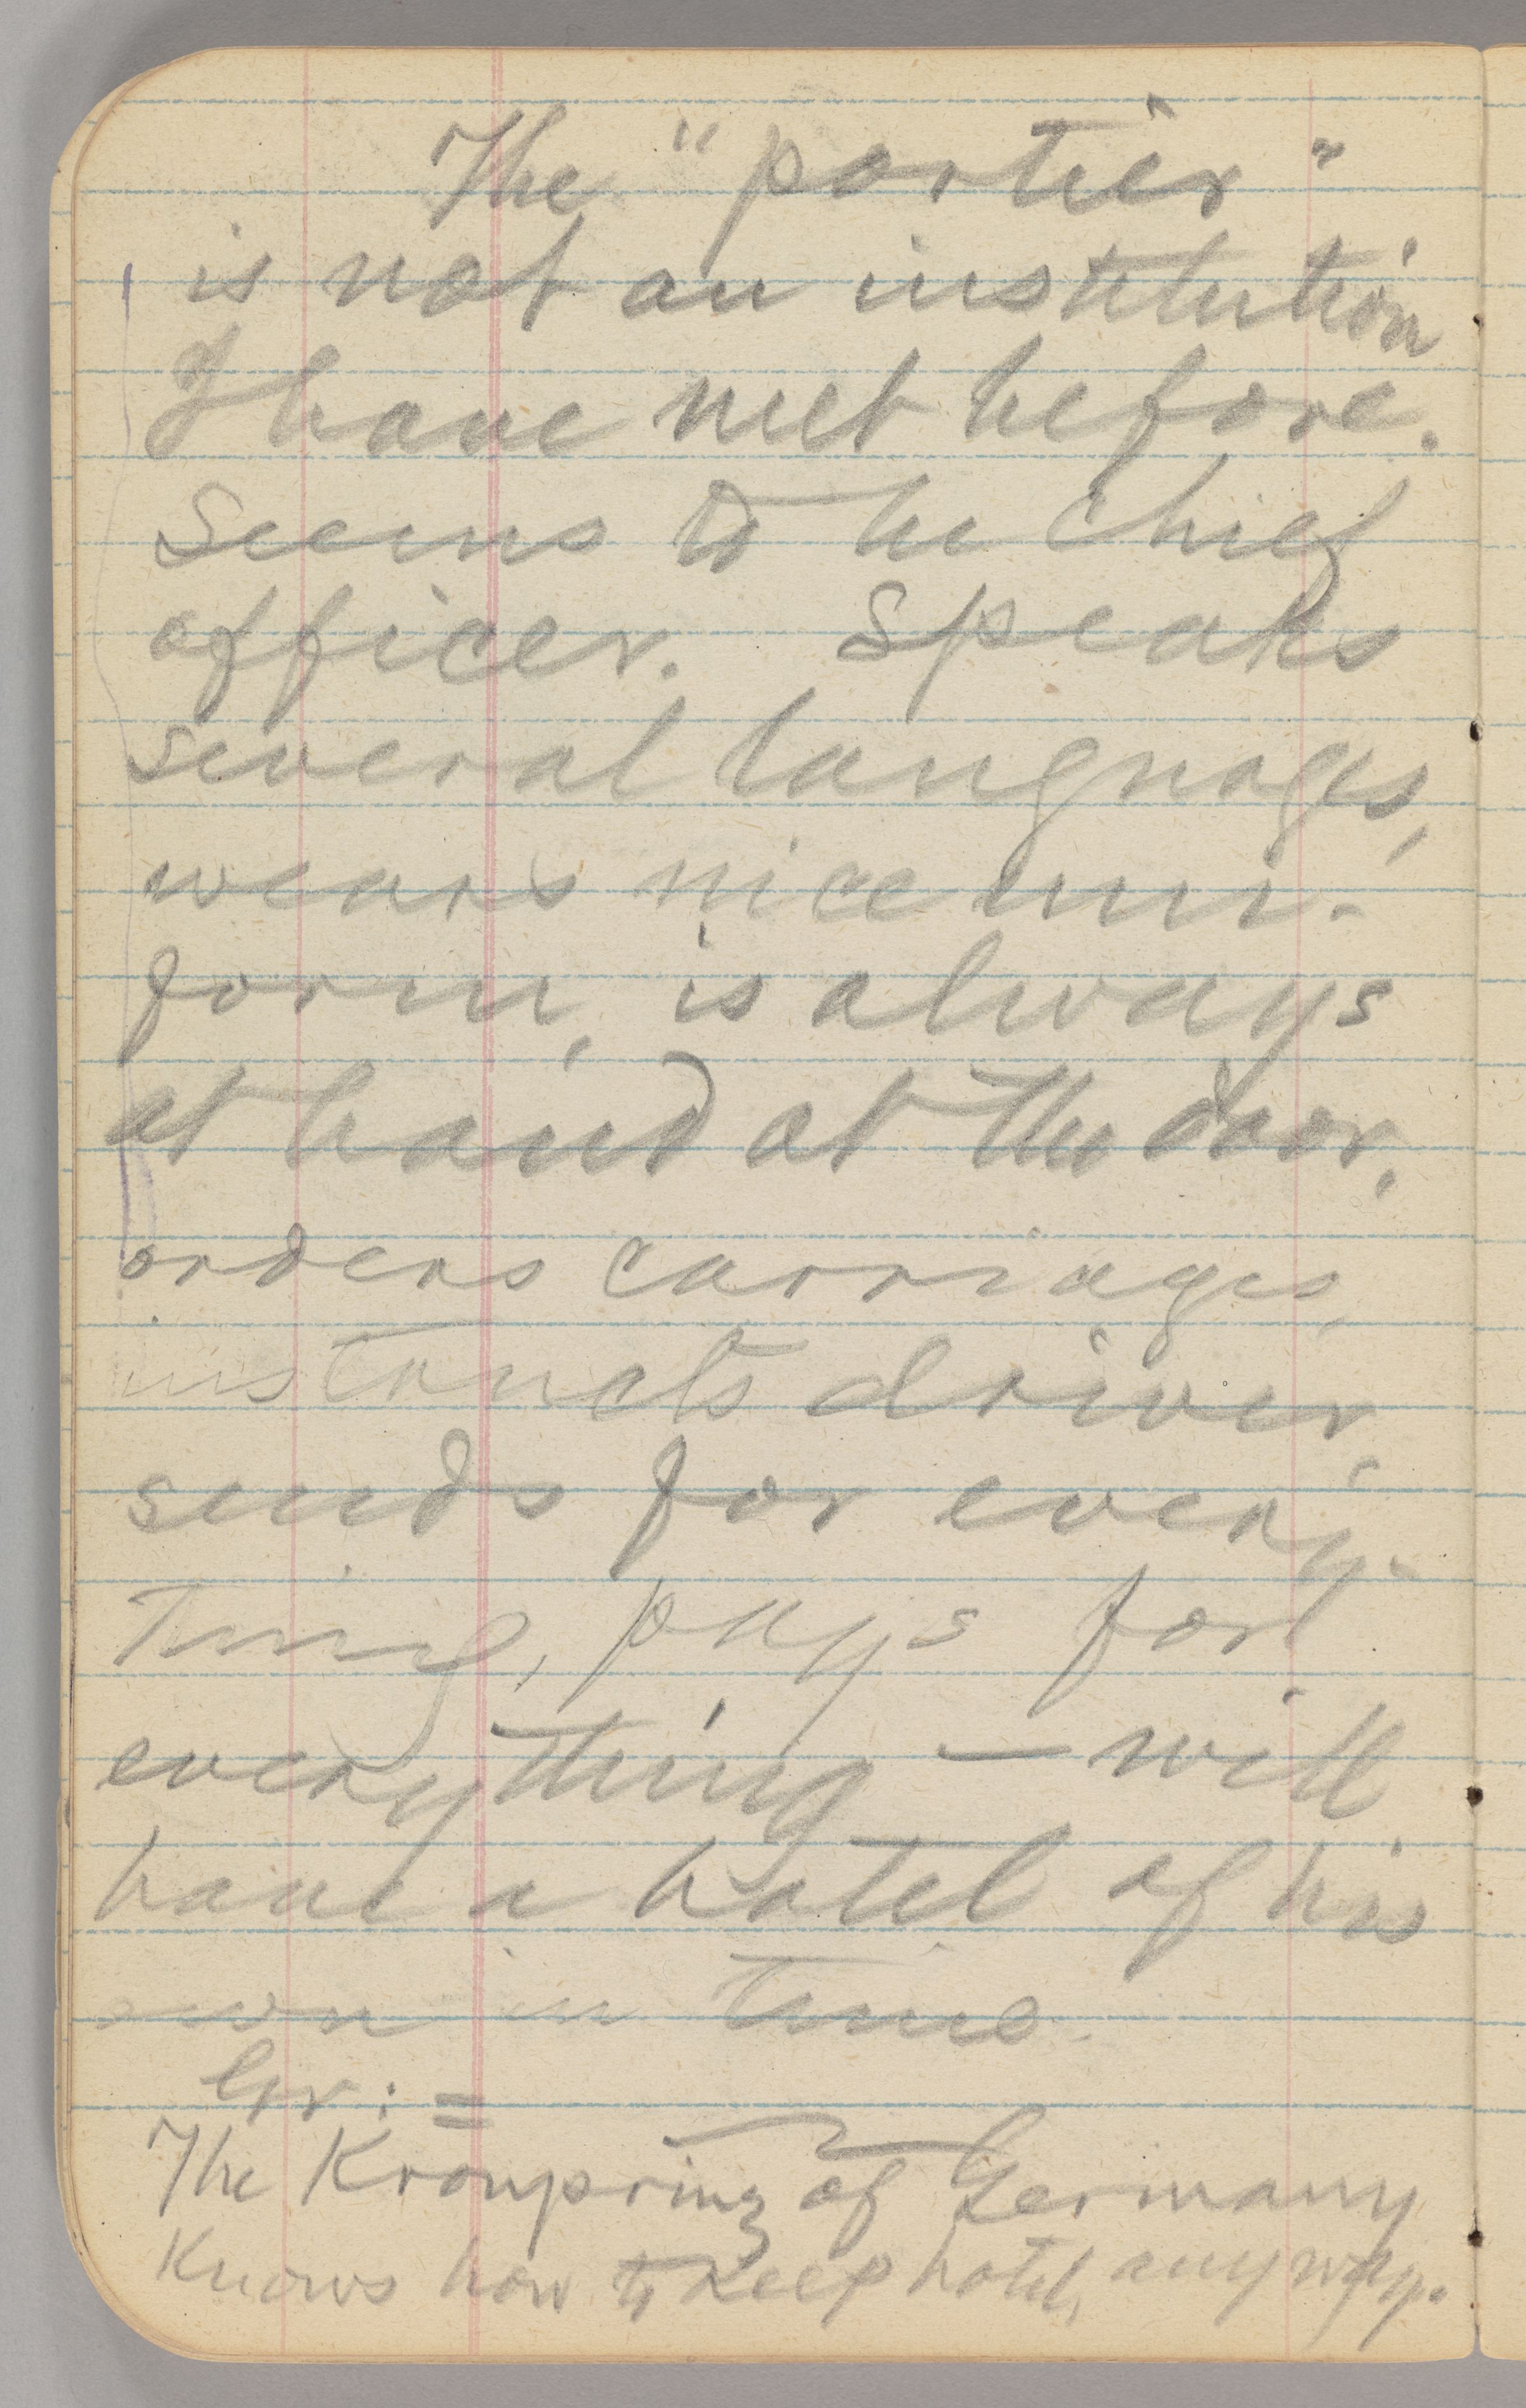 The "portier"
is not an institution
I have met before.
Seems to be chief
officer. Speaks
several languages,
wears nice uni-
form, is always
at hand at the door,
orders carriages,
instructs driver,
sends for every-
thing, pays for
everything — will
have a hotel of his
own in time.
Gr: =
The Kronprinz of Germany
Knows how to keep hotel, anyway.